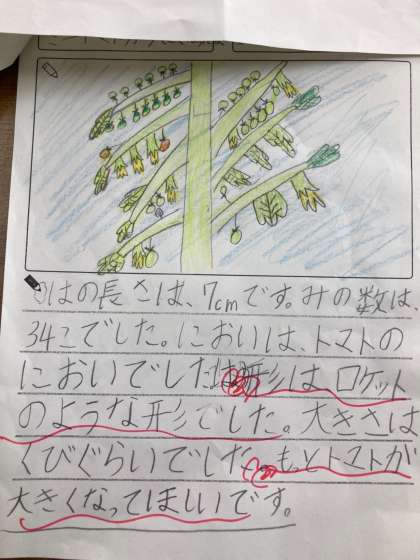 はの長さは、7cmです。みの数は、
34こでした。においは、トマトの
においでした。形はロケット
のような形でした。大きさは
くびぐらいでした。もっとトマトが
大きくなってほしいです。